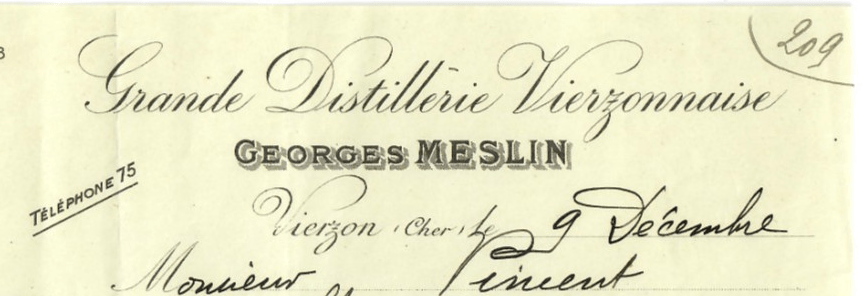 209
Grande Distillerie Vierzonnaise
GEORGES MESLIN
TÉLÉPHONE 75
Vierzon (Cher), le 9 Décembre
Monsieur Pincent